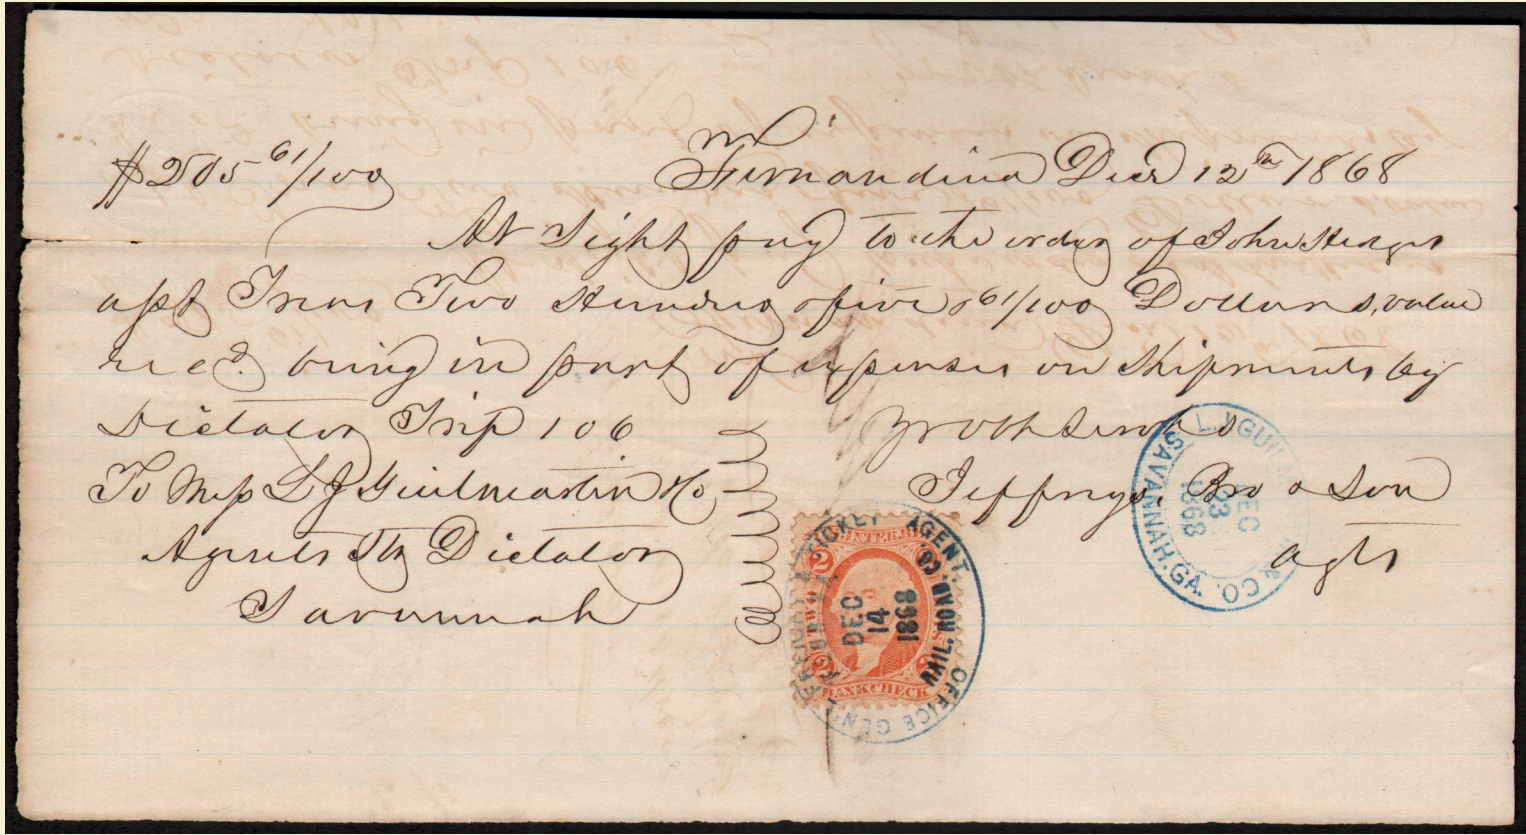 $205 61/100 Fernandina Decr 12th 1868
At Sight pay to the order of John
asst Treas Two Hundred & five & 61/100 Dollars, value
recd. being in part of expenses on Shipments by
Dictator Trip 106 Yr Obt Servts
To Mess L J Guilmartin & Co Jeffreys, Bro & Son
Agents Str Dictator agts
Savannah
L. J. GUILMARTIN & CO. SAVANNAH, GA.
DEC
23
1868
OFFICE GEN'L FREIGHT & TICKET AGENT.
RAIL ROAD CO
DEC
14
1868
U.S. INTER. REV.
2 2
TWO
2 2
BANK CHECK